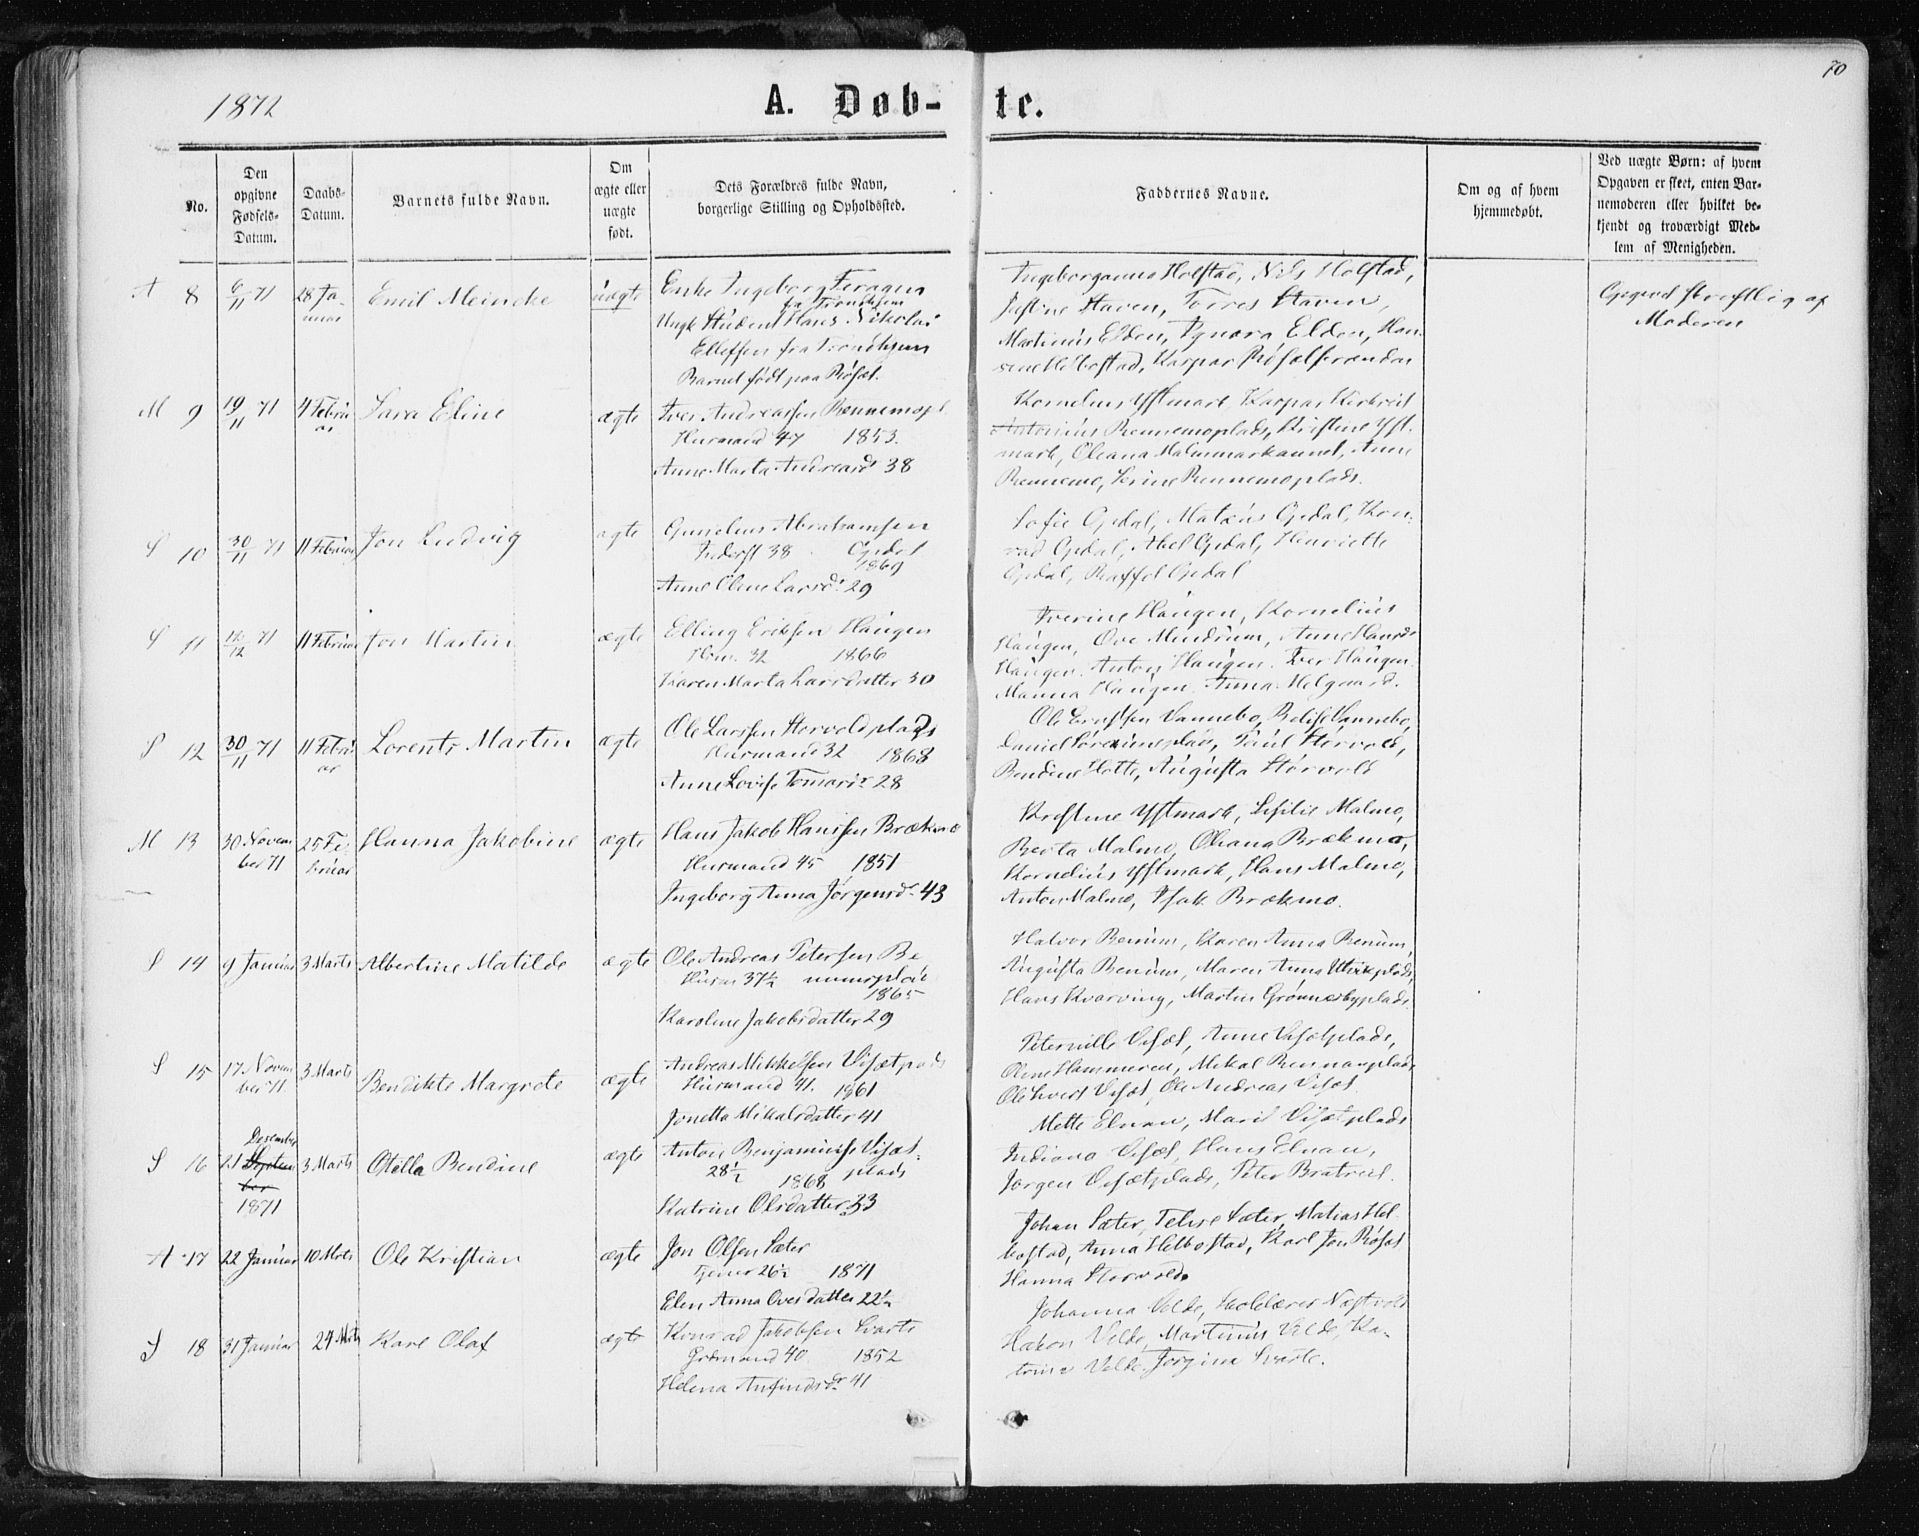 70
1872
A. Døb-
te.
No.
Den opgivne Fødsels-Datum.
Daabs-Datum.
Barnets fulde Navn.
Om ægte eller uægte født.
Dets Forældres fulde Navn, borgerlige Stilling og Opholdssted.
Faddernes Navne.
Om og af hvem hjemmedøbt.
Ved uægte Børn: af hvem Opgaven er skeet, enten Barnemoderen eller hvilket bekjendt og troværdigt Medlem af Menigheden.
A 8 6/11 71 28 Januar Emil Meincke uægte
Enke Ingeborg Feragen
fra Tronhjem
Ungk Student Hans Nikolai
Ellefsen fra Trondhjem
Barnet født paa Røsæt.
Ingeborganna Holstad, Nils Holstad,
Justine Staven, Torres Staven,
Martinus Elden, Elden,
Helbostad, Kaspar
Opgivet skriftlig af
Moderen
M 9 19/11 71 4 Februar Sara Eline ægte
Iver Andreassen Rennemopl.
Husmand 47 1853.
Anne Marta Andreasd. 38
Kornelius Ystmark, Kaspar
Antonius Rennemoplads, Kristine Yst-
mark, Oleana Anne
Rennemo, Serine Rennemoplads.
S 10 30/11 71 11 Februar Jon Ludvig ægte
Gunelius Abrahamsen
Inderst 38 Opdal
1869
Anne Oline Larsd. 29
Sofie Opdal, Matæus Opdal, Kon-
rad Opdal, Abel Opdal, Henriette
Opdal, Opdal
S 11 12/12 71 11 Februar Jon Martin ægte
Elling Eriksen Haugen
Husm. 32 1866
Karen Marta Larsdatter 30
Iverine Haugen, Kornelius
Haugen, Ove Mindrum, Anne Hansd.
Haugen. Anton Haugen. Iver Haugen.
Manna Haugen. Anna Melgaard.
S 12 30/11 71 11 Februar Lorents Martin ægte
Ole Larssen Storvoldplads
Husmand 32 1868
Anne Lovise Tomasd. 28
Ole Vannebo, Vannebo,
Daniel Paul Storvold,
Bendine Holte, Augusta Storvold
M 13 30 November 71 25 Februar Hanna Jakobine ægte
Hans Jakob Hanssen Brækmo
Husmand 45 1851
Ingeborg Anna Jørgensd. 43
Kristine Ystmark, Malmo,
Berta Malmo, Oleana Brækmo,
Kornelius Ystmark, Hans Malmo,
Anton Malmo, Isak Brækmo.
S 14 9 Januar 3 Marts Albertine Matilde ægte
Ole Andreas Petersen Be-
Husm 37½ numsplads
1865
Karoline Jakobsdatter 29
Halvor Benum, Karen Anna Benum,
Augusta Benum, Maren Anna
Hans Kvarving, Martin Grønnesbyplads.
S 15 17 November 71. 3 Marts Bendikte Margrete ægte
Andreas Mikkelsen Visætplads
Husmand 41. 1861
Jonetta Mikalsdatter 41
Visæt, Anne Visætplads,
Oline Hammeren, Mikal
Visæt, Ole Andreas Visæt
S 16 21 Desember 1871 3 Marts Otilla Bendine ægte
Anton Benjaminss. Visæt-
28½ 1868 plads
Katrine Olsdatter 33
Mette Elnan, Marit Visætplads
Indiana Visæt, Hans Elnan,
Jørgen Visætplads, Peter
A 17 22 Januar 10 Marts Ole Kristian ægte
Jon Olsen Sæter
Tjener 26½ 1871
Elen Anna Ovesdatter 22½
Johan Sæter, Sæter, Matias Hel-
bostad, Anna Helbostad, Karl Jon Røsæt
Hanna Storvold.
S 18 31 Januar 24 Marts Karl Olaf ægte
Konrad Jakobsen Svarte
Grdmand 40 1852
Helena Anfindsd. 41
Johanna Velde, Næstvold
Hakon Velde, Martinus Velde, Ka-
trina Velde, Jørgina Svarte.